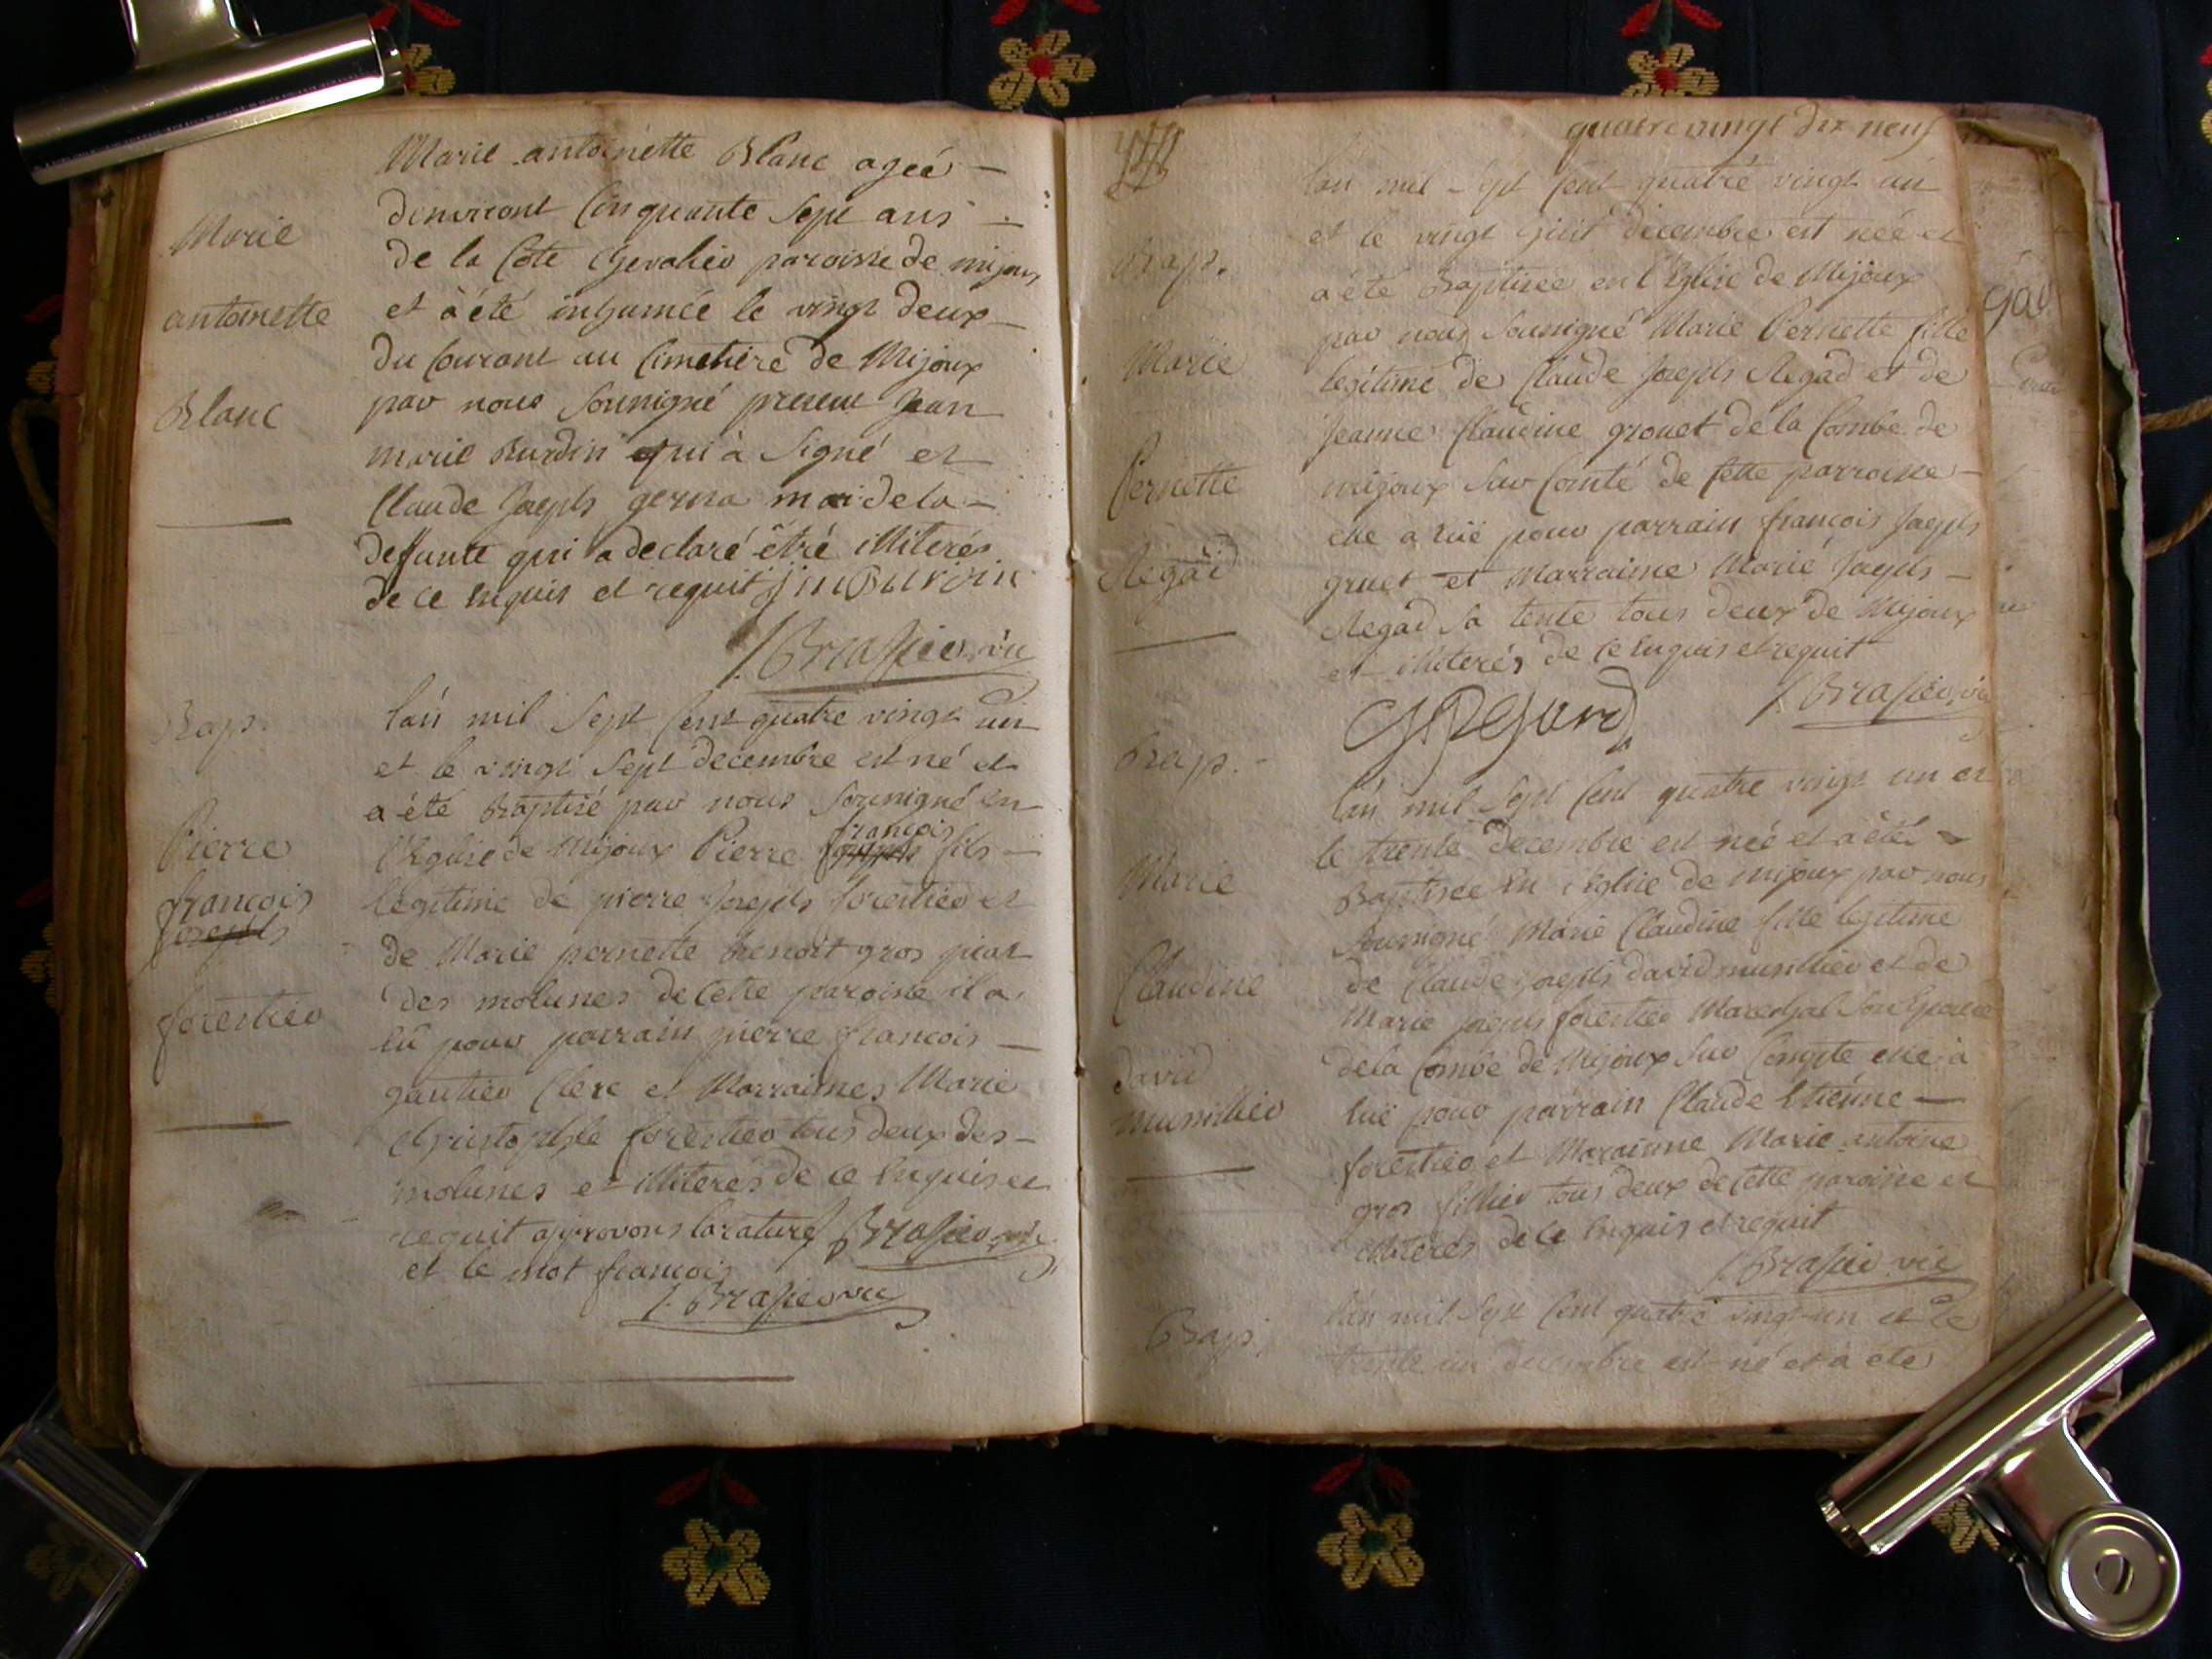 Marie antoinette Blanc ageé
denviront Cinquante Sept ans
Marie
de la Côte Chevalier paroisse de mijoux
antoinette
et à été inhumée le vingt deux
du Courant au Cimetiere de Mijoux
Blanc
par nous Sousigné present Jean
marie Burdin qui à Signé et
Claude Joseph mari de la
deffunte qui a declaré être illiterés
de ce Enquis et requit jm Burdin
Bap.
l'an mil Sept Cent quatre vingt un
et le vingt Sept decembre est né et
a été Baptisé par nous Sousigné En
Pierre
françois
l'Eglise de Mijoux Pierre Joseph fils
françois
Joseph
legitime de pierre Joseph forestier et
de Marie pernette benoit gros piar
forestier
des molunes de Cette paroisse il a
Eû pour parrain pierre françois
gautier Clerc et Marraines Marie
Christophle forestier tous deux des
molunes et illiterés de ce Enquis et
requit approvons la rature
et le mot françois
quatre vingt dix neuf
l'an mil Sept Cent quatre vingt un
Bap.
et le vingt huit decembre est née et
a été Baptisée en l'Eglise de Mijoux
par nous Sousigné Marie Pernette fille
Marie
legitime de Claude Joseph Regad et de
Jeanne Claudine grouet de la Combe de
Pernette
mijoux Sur Comté de Cette parroisse
elle a Euë pour parrain françois Joseph
Regad
gruet et Marraine Marie Joseph
Regad Sa tente tous deux de Mijoux
et illiterés de ce Enquis et requit
Bap.
l'an mil Sept Cent quatre vingt un et
le trente decembre est née et a été
Marie
Baptisee En l'Eglise de mijoux par nous
Sousigné Marie Claudine fille legitime
Claudine
de Claude Joseph david munithier et de
Marie Joseph forestier Marechal Son Epouse
david
de la Combe de Mijoux Sur Compte elle à
munithier
Euë pour parrain Claude Etienne
forestier et Marainne Marie antoine
gros fillier tous deux de Cette paroisse et
illiterés de ce Enquis et requit
Bap.
l'an mil Sept Cent quatre vingt un et le
trente un decembre est né et a été